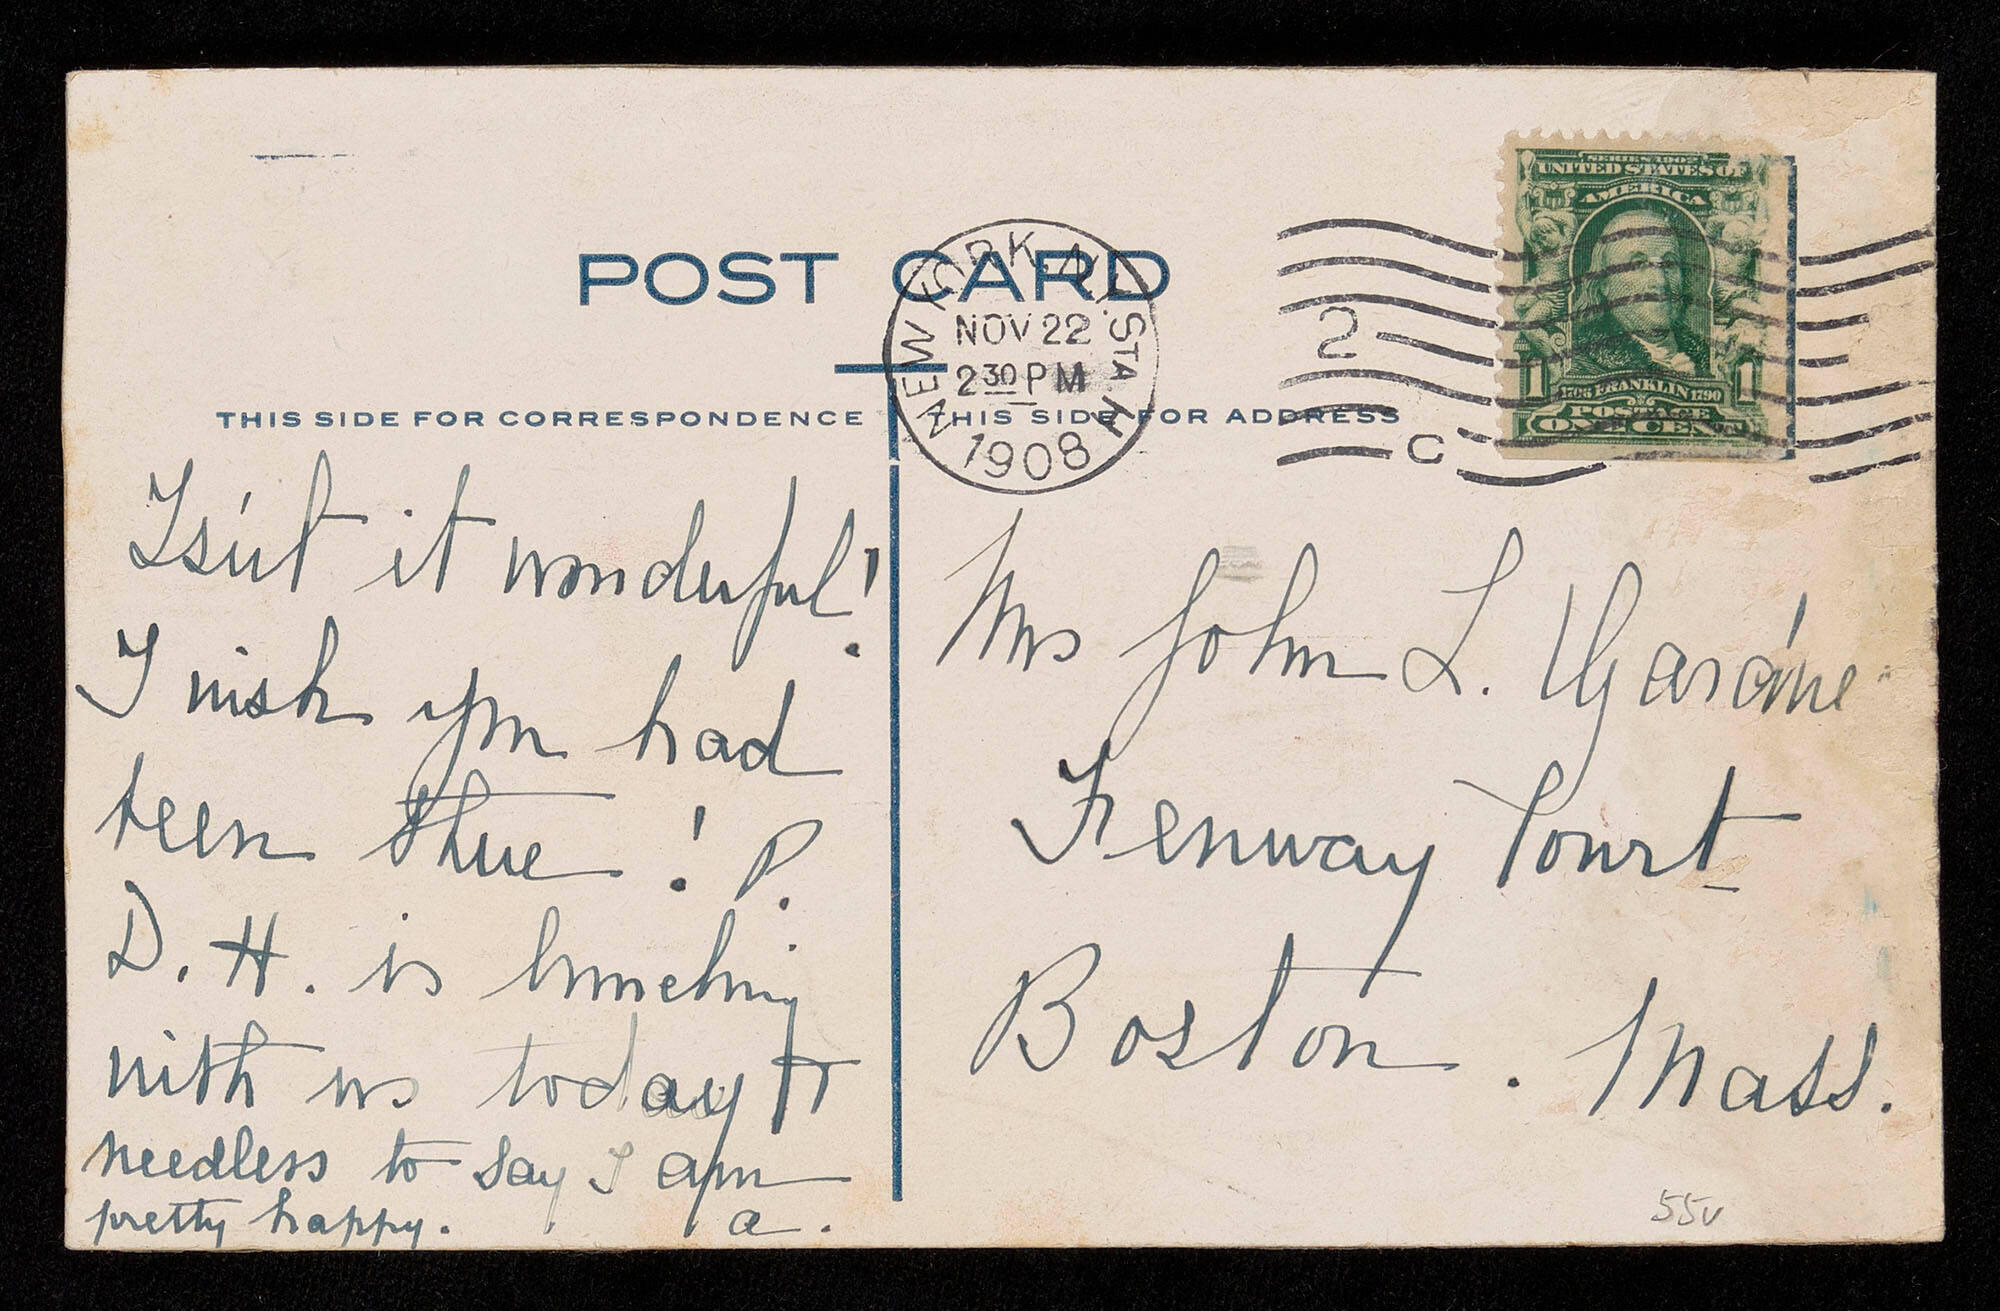 POST CARD
NEW YORK, N.Y. STA. H
NOV 22
2 30 PM
1908
2
C
SERIES 1902
UNITED STATES OF
AMERICA
1 1706 FRANKLIN 1790 1
POSTAGE
ONE CENT
THIS SIDE FOR CORRESPONDENCE
THIS SIDE FOR ADDRESS
Is'nt it wonderful!
I wish you had
been there! P.
D. H. is lunching
with us today &
needless to say I am
pretty happy. a.
Mrs John L. Gardne
Fenway Court
Boston. Mass.
55v